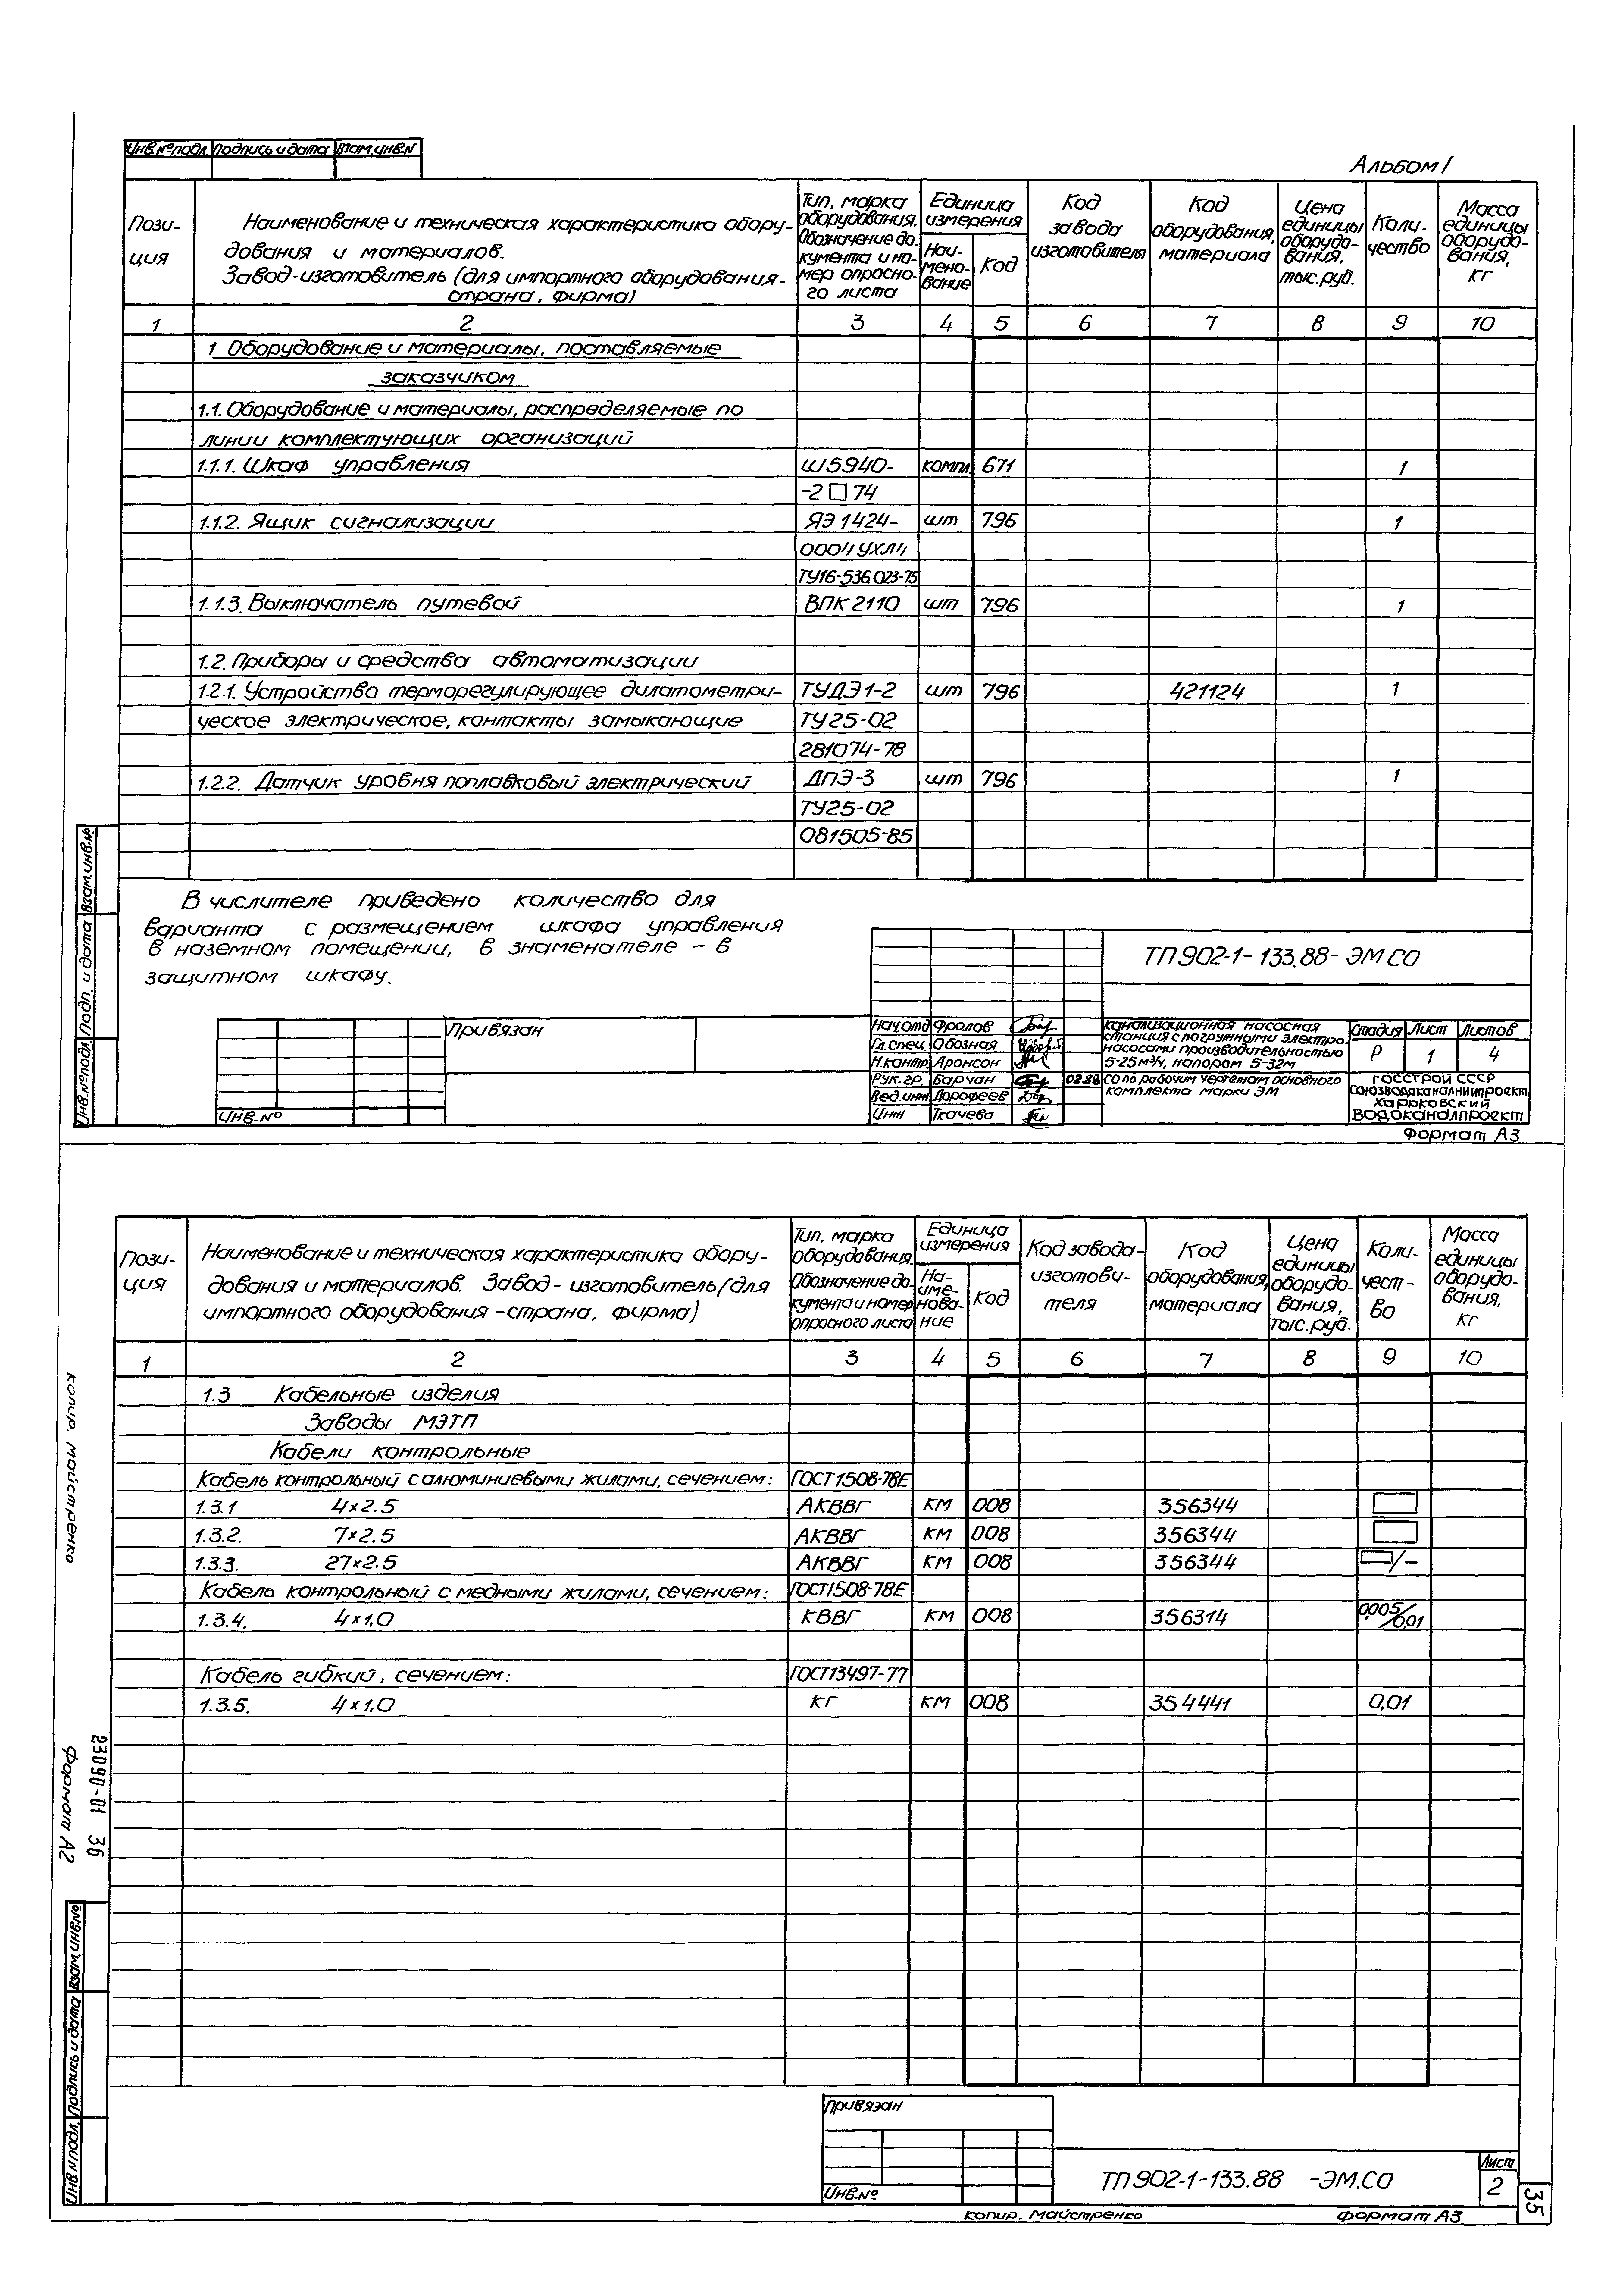 Инв.№подл. Подпись и дата Взам.инв.N
Альбом I
Пози-
ция
Наименование и техническая характеристика обору-
дования и материалов.
Завод-изготовитель (для импортного оборудования-
страна, фирма)
Тип, марка
оборудования.
Обозначение до-
кумента и но-
мер опросно-
го листа
Единица
измерения
Наи-
мено-
вание
Код
Код
завода
изготовителя
Код
оборудования,
материала
Цена
единицы
оборудо-
вания,
тыс.руб.
Коли-
чество
Масса
единицы
оборудо-
вания,
кг
1 2 3 4 5 6 7 8 9 10
1 Оборудование и материалы, поставляемые
заказчиком
1.1. Оборудование и материалы, распределяемые по
линии комплектующих организаций
1.1.1. Шкаф управления Ш5940- компл. 671 1
-2 □ 74
1.1.2. Ящик сигнализации ЯЭ1424- шт 796 1
0004 УХЛ4
ТУ16-536.023-75
1.1.3. Выключатель путевой ВПК 2110 шт 796 1
1.2. Приборы и средства автоматизации
1.2.1. Устройство терморегулирующее дилатометри- ТУДЭ1-2 шт 796 421124 1
ческое электрическое, контакты замыкающие ТУ25-02
281074-78
1.2.2. Датчик уровня поплавковый электрический ДПЭ-3 шт 796 1
ТУ25-02
081505-85
В числителе приведено количество для
варианта с размещением шкафа управления
в наземном помещении, в знаменателе - в
защитном шкафу.
Инв.№подл. Подп. и дата Взам.инв.№
Привязан
Инв.№
ТП 902-1-133.88-ЭМ СО
Нач.отд Фролов
Гл.спец. Обозная
Н.контр. Аронсон
Рук.гр. Барчан 02.88
Вед.инж Дорофеев
Инж Ткачева
Канализационная насосная
станция с погружными электро-
насосами производительностью
5-25м³/ч, напором 5-32м
СО по рабочим чертежам основного
комплекта марки ЭМ
Стадия Лист Листов
Р 1 4
Госстрой СССР
Союзводоканалниипроект
Харьковский
Водоканалпроект
Формат А3
Пози-
ция
Наименование и техническая характеристика обору-
дования и материалов. Завод-изготовитель (для
импортного оборудования - страна, фирма)
Тип, марка
оборудования.
Обозначение до-
кумента и номер
опросного листа
Единица
измерения
На-
име-
нова-
ние
Код
Код завода-
изготови-
теля
Код
оборудования,
материала
Цена
единицы
оборудо-
вания,
тыс.руб.
Коли-
чест-
во
Масса
единицы
оборудо-
вания,
кг
1 2 3 4 5 6 7 8 9 10
1.3 Кабельные изделия
Заводы МЭТП
Кабели контрольные
Кабель контрольный с алюминиевыми жилами, сечением: ГОСТ1508-78Е
1.3.1 4×2.5 АКВВГ км 008 356344 □
1.3.2. 7×2.5 АКВВГ км 008 356344 □
1.3.3. 27×2.5 АКВВГ км 008 356344 □/-
Кабель контрольный с медными жилами, сечением: ГОСТ1508-78Е
1.3.4. 4×1,0 КВВГ км 008 356314 0,005/0,01
Кабель гибкий, сечением: ГОСТ13497-77
1.3.5. 4×1,0 КГ км 008 354441 0,01
Копир. Майстренко
23090-01 36
Формат А2
Инв.№подл. Подпись и дата Взам.инв.№
Привязан
Инв.№
ТП 902-1-133.88 -ЭМ.СО
Лист
2
35
Копир. Майстренко Формат А3